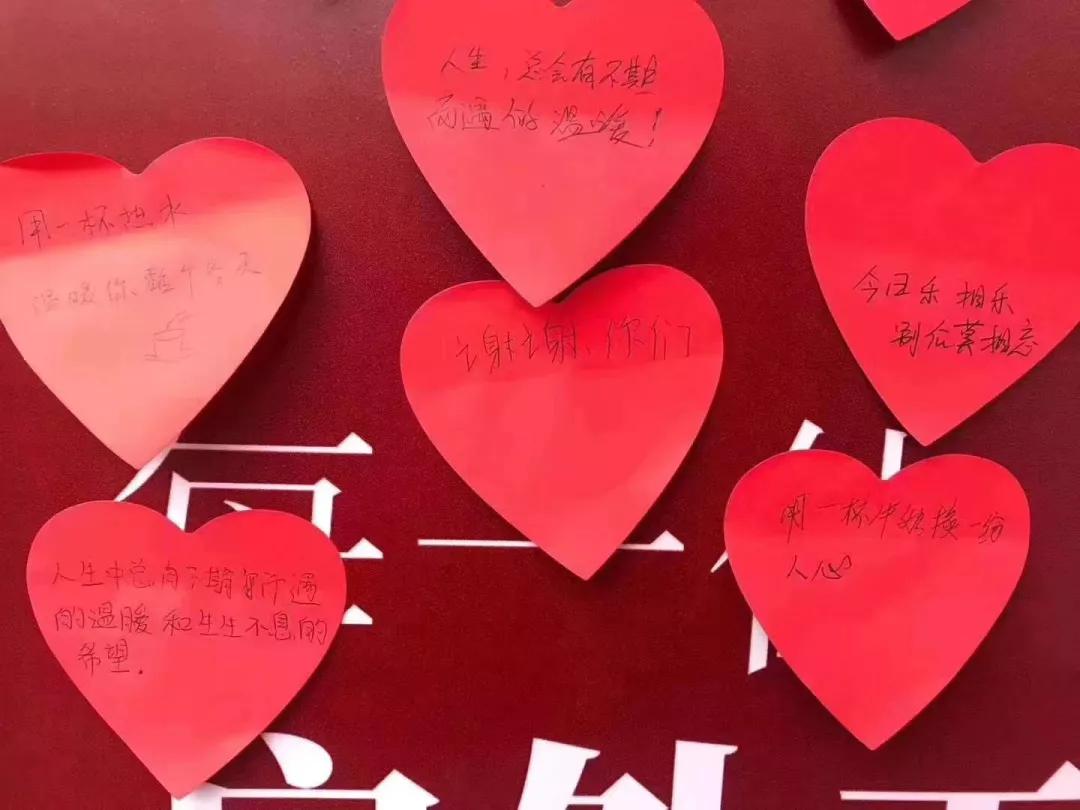 人生，总会有不期
而遇的温暖！
用一杯热水
温暖你整个冬天
谢谢你们
今日乐相乐
别后莫相忘
每一份
用一杯牛奶换一份
人心
人生中总有不期而遇
的温暖和生生不息的
希望.